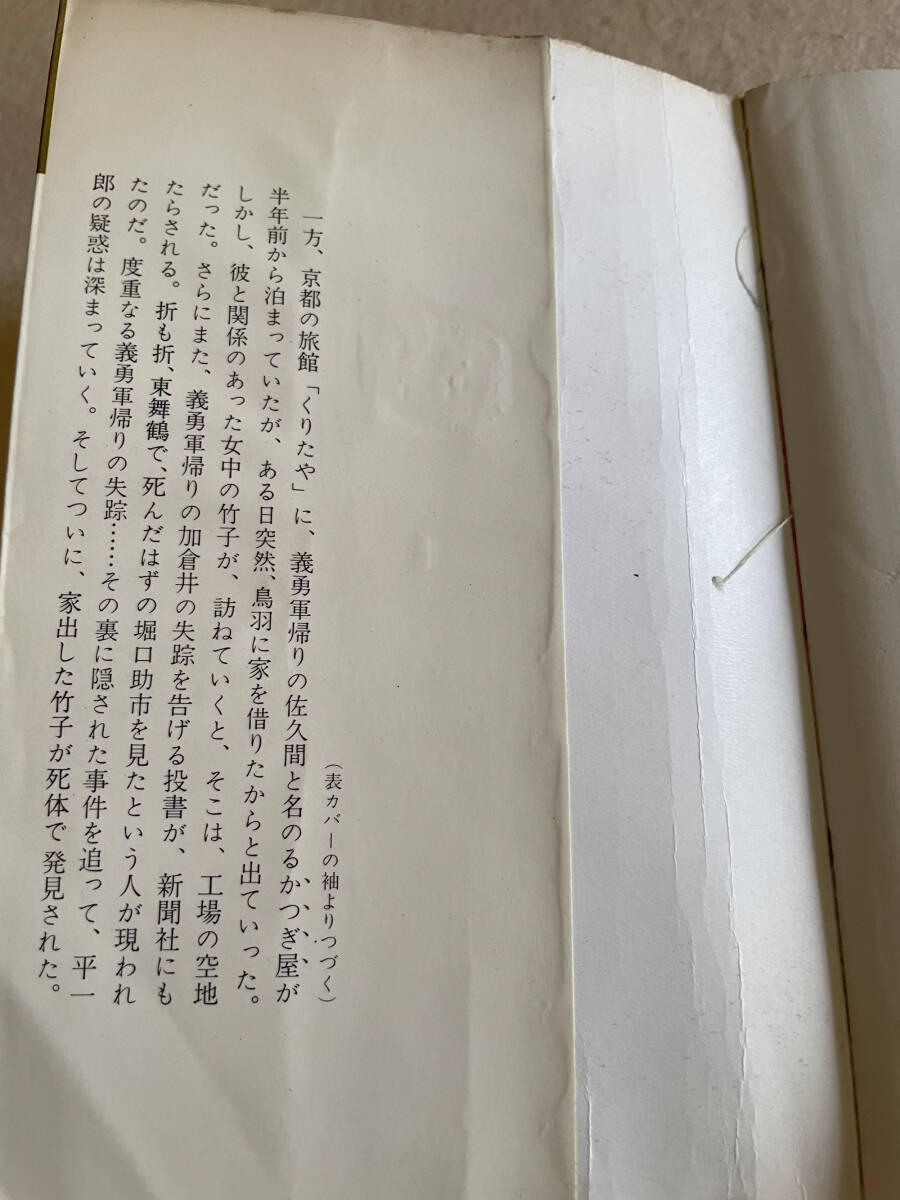 （表カバーの袖よりつづく）
一方、京都の旅館「くりたや」に、義勇軍帰りの佐久間と名のるかつぎ屋が
半年前から泊まっていたが、ある日突然、鳥羽に家を借りたからと出ていった。
しかし、彼と関係のあった女中の竹子が、訪ねていくと、そこは、工場の空地
だった。さらにまた、義勇軍帰りの加倉井の失踪を告げる投書が、新聞社にも
たらされる。折も折、東舞鶴で、死んだはずの堀口助市を見たという人が現われ
たのだ。度重なる義勇軍帰りの失踪……その裏に隠された事件を追って、平一
郎の疑惑は深まっていく。そしてついに、家出した竹子が死体で発見された。